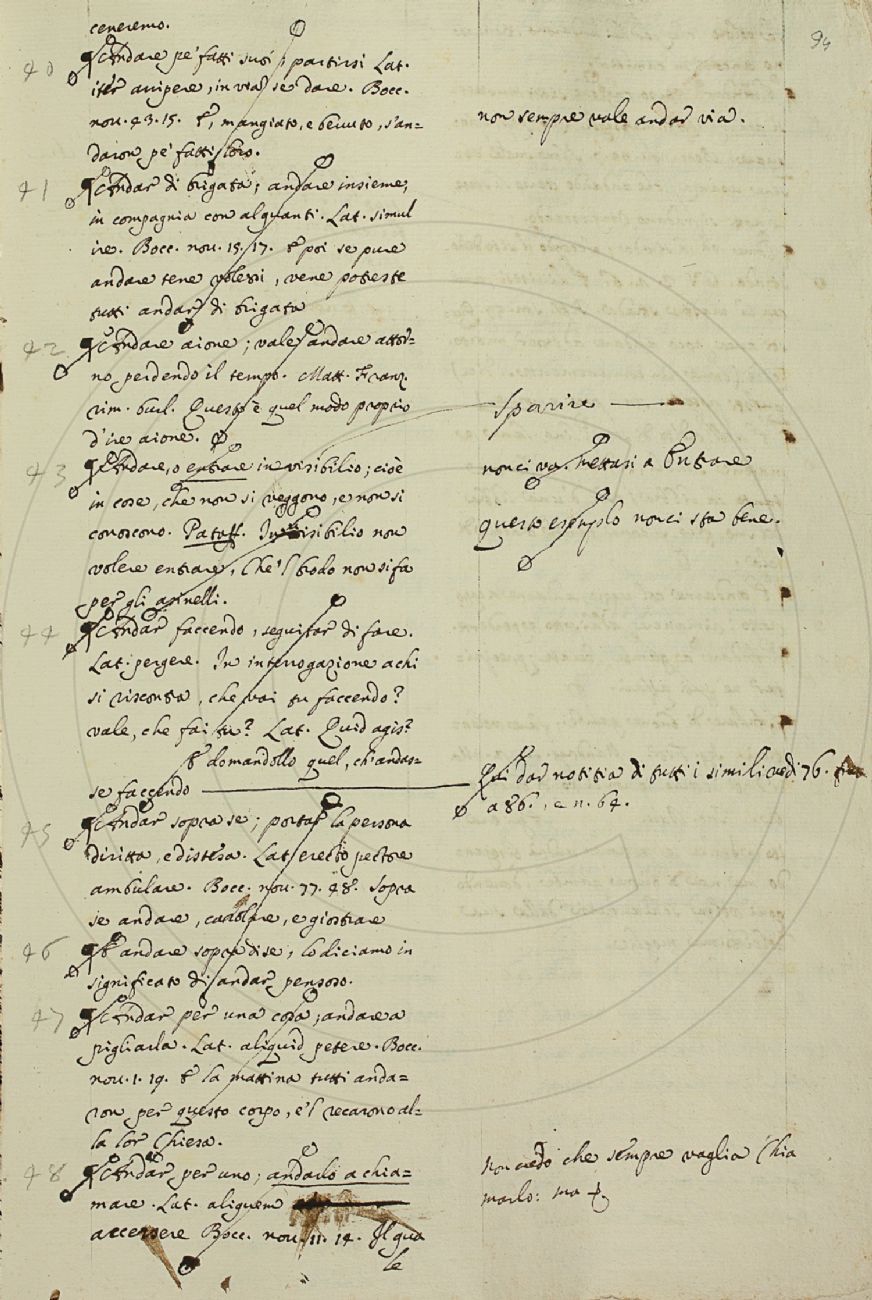 94
ceneremo.
40 Andare pe' fatti suoi, partirsi Lat.
iter arripere, in via se dare. Bocc.
nov. 43. 15. E, mangiato, e bevuto, s'an=
daron pe' fatti loro.
non sempre vale andar via.
41 Andar di brigata; andare insieme,
in compagnia con alquanti. Lat. simul
ire. Bocc. nov. 15. 17. E poi se pure
andare tene volessi, vene potreste
tutti andar di brigata
42 Andare aione; vale andare attor=
no perdendo il tempo. Matt. Franz.
rim. burl. Questo è quel modo proprio
d'ire aione.
Sparire
43 Andare, o entrare in visibilio; cioè
in cose, che non si veggono, e non si
conoscono. Pataff. In visibilio non
volere entrare, Che'l brodo non si fa
per gli asinelli.
non ci va messasi a Entrare
questo esemplo non ci sta bene.
44 Andar faccendo, seguitar di fare.
Lat. pergere. In interrogazione a chi
si riscontra, che vai tu faccendo?
vale, che fai tu? Lat. Quid agis?
E domandollo quel, ch'andas=
se faccendo
Qui dar notitia di tutti i simili vedi 76.
a 86., e n. 64.
45 Andar sopra se; portar la persona
diritta, e distesa. Lat. erecto pectore
ambulare. Bocc. nov. 77. 48. Sopra
se andare, e giostrare
46 E andare sopra di se, lo diciamo in
significato di andar pensoso.
47 Andar per una cosa; andare a
pigliarla. Lat. aliquid petere. Bocc.
nov. 1. 19. E la mattina tutti anda=
ron per questo corpo, e'l recarono al=
la lor Chiesa.
48 Andar per uno; andarlo a chia=
mare. Lat. aliquem
accersere Bocc. nov. 11. 14. Il qua
le
Non credo che sempre vaglia Chia
marlo: ma